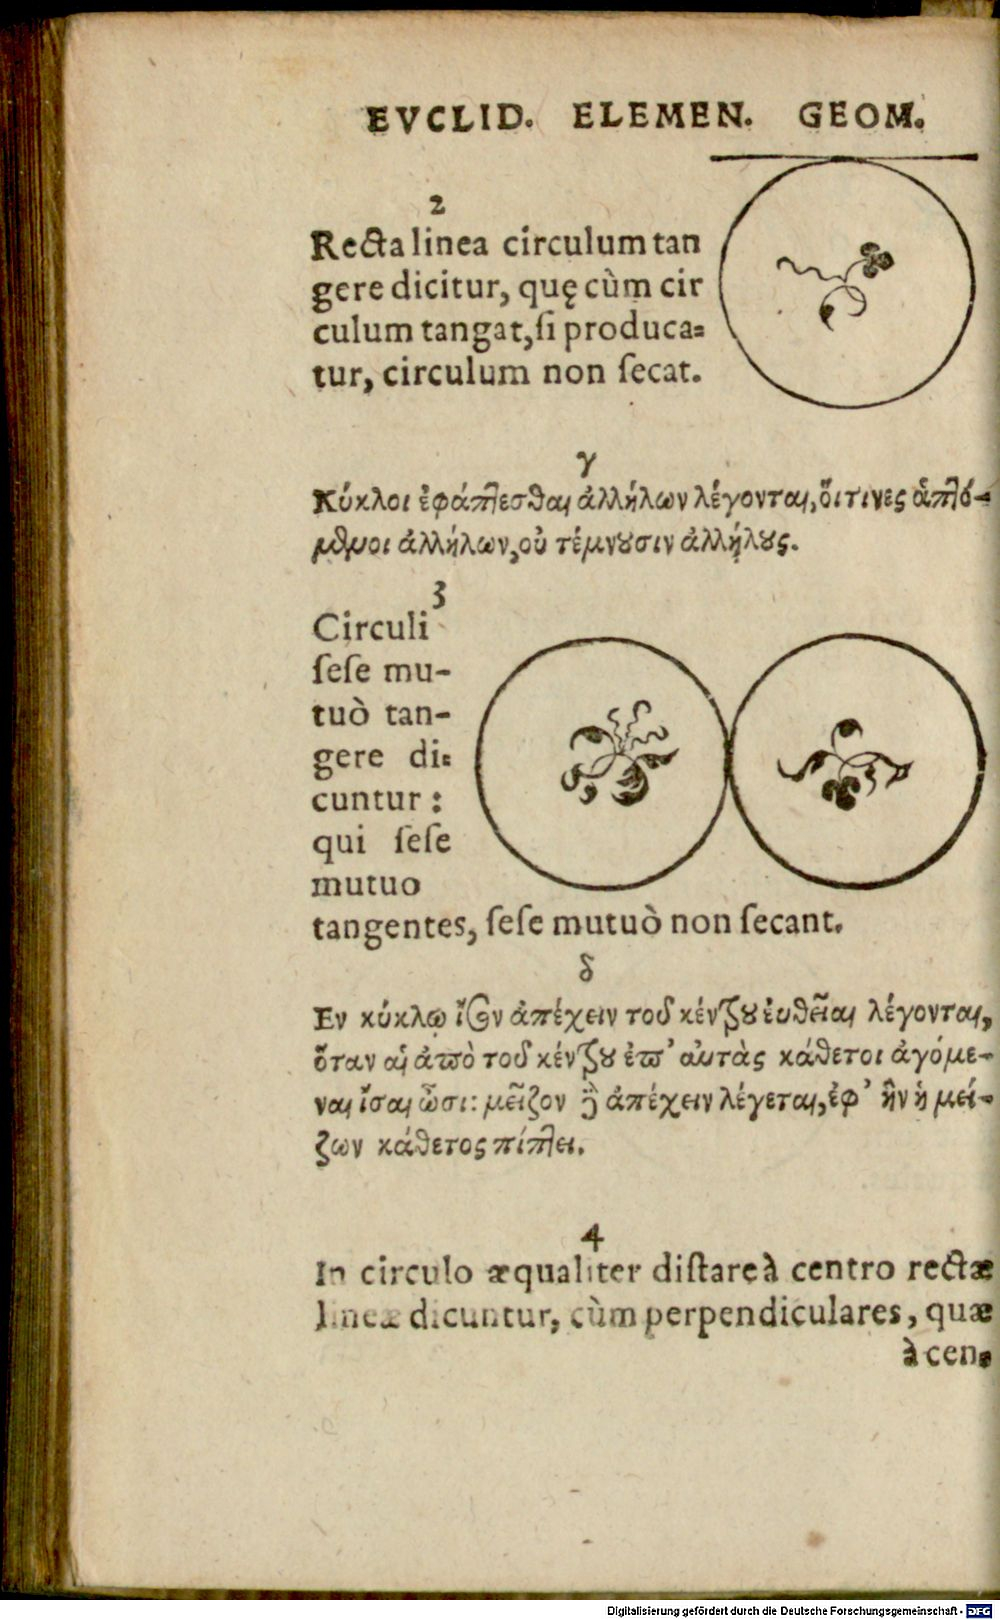 EVCLID. ELEMEN. GEOM.
2
Recta linea circulum tan
gere dicitur, quę cùm cir
culum tangat, ſi produca⸗
tur, circulum non ſecat.
γ
Κύκλοι ἐφάπτεσθαι ἀλλήλων λέγονται, ὅιτινες ἁπτό-
μϑμοι ἀλλήλων, οὐ τέμνȣσιν ἀλλήλȣς.
3
Circuli
ſeſe mu-
tuò tan-
gere di⸗
cuntur:
qui ſeſe
mutuo
tangentes, ſeſe mutuò non ſecant.
δ
Εν κύκλῳ ἴσον ἀπέχειν τοῦ κέντρȣ ἐυθεῖαι λέγονται,
ὅταν αἱ ἀπὸ τοῦ κέντρȣ ἐπ’ αὐτὰς κάθετοι ἀγόμε-
ναι ἴσαι ὦσι: μεῖζον δὲ ἀπέχειν λέγεται, ἐφ’ ἣν ἡ μεί-
ζων κάθετος πίπτει.
4
In circulo æqualiter diſtare à centro rectæ
lineæ dicuntur, cùm perpendiculares, quæ
à cen⸗
Digitalisierung gefördert durch die Deutsche Forschungsgemeinschaft - DFG